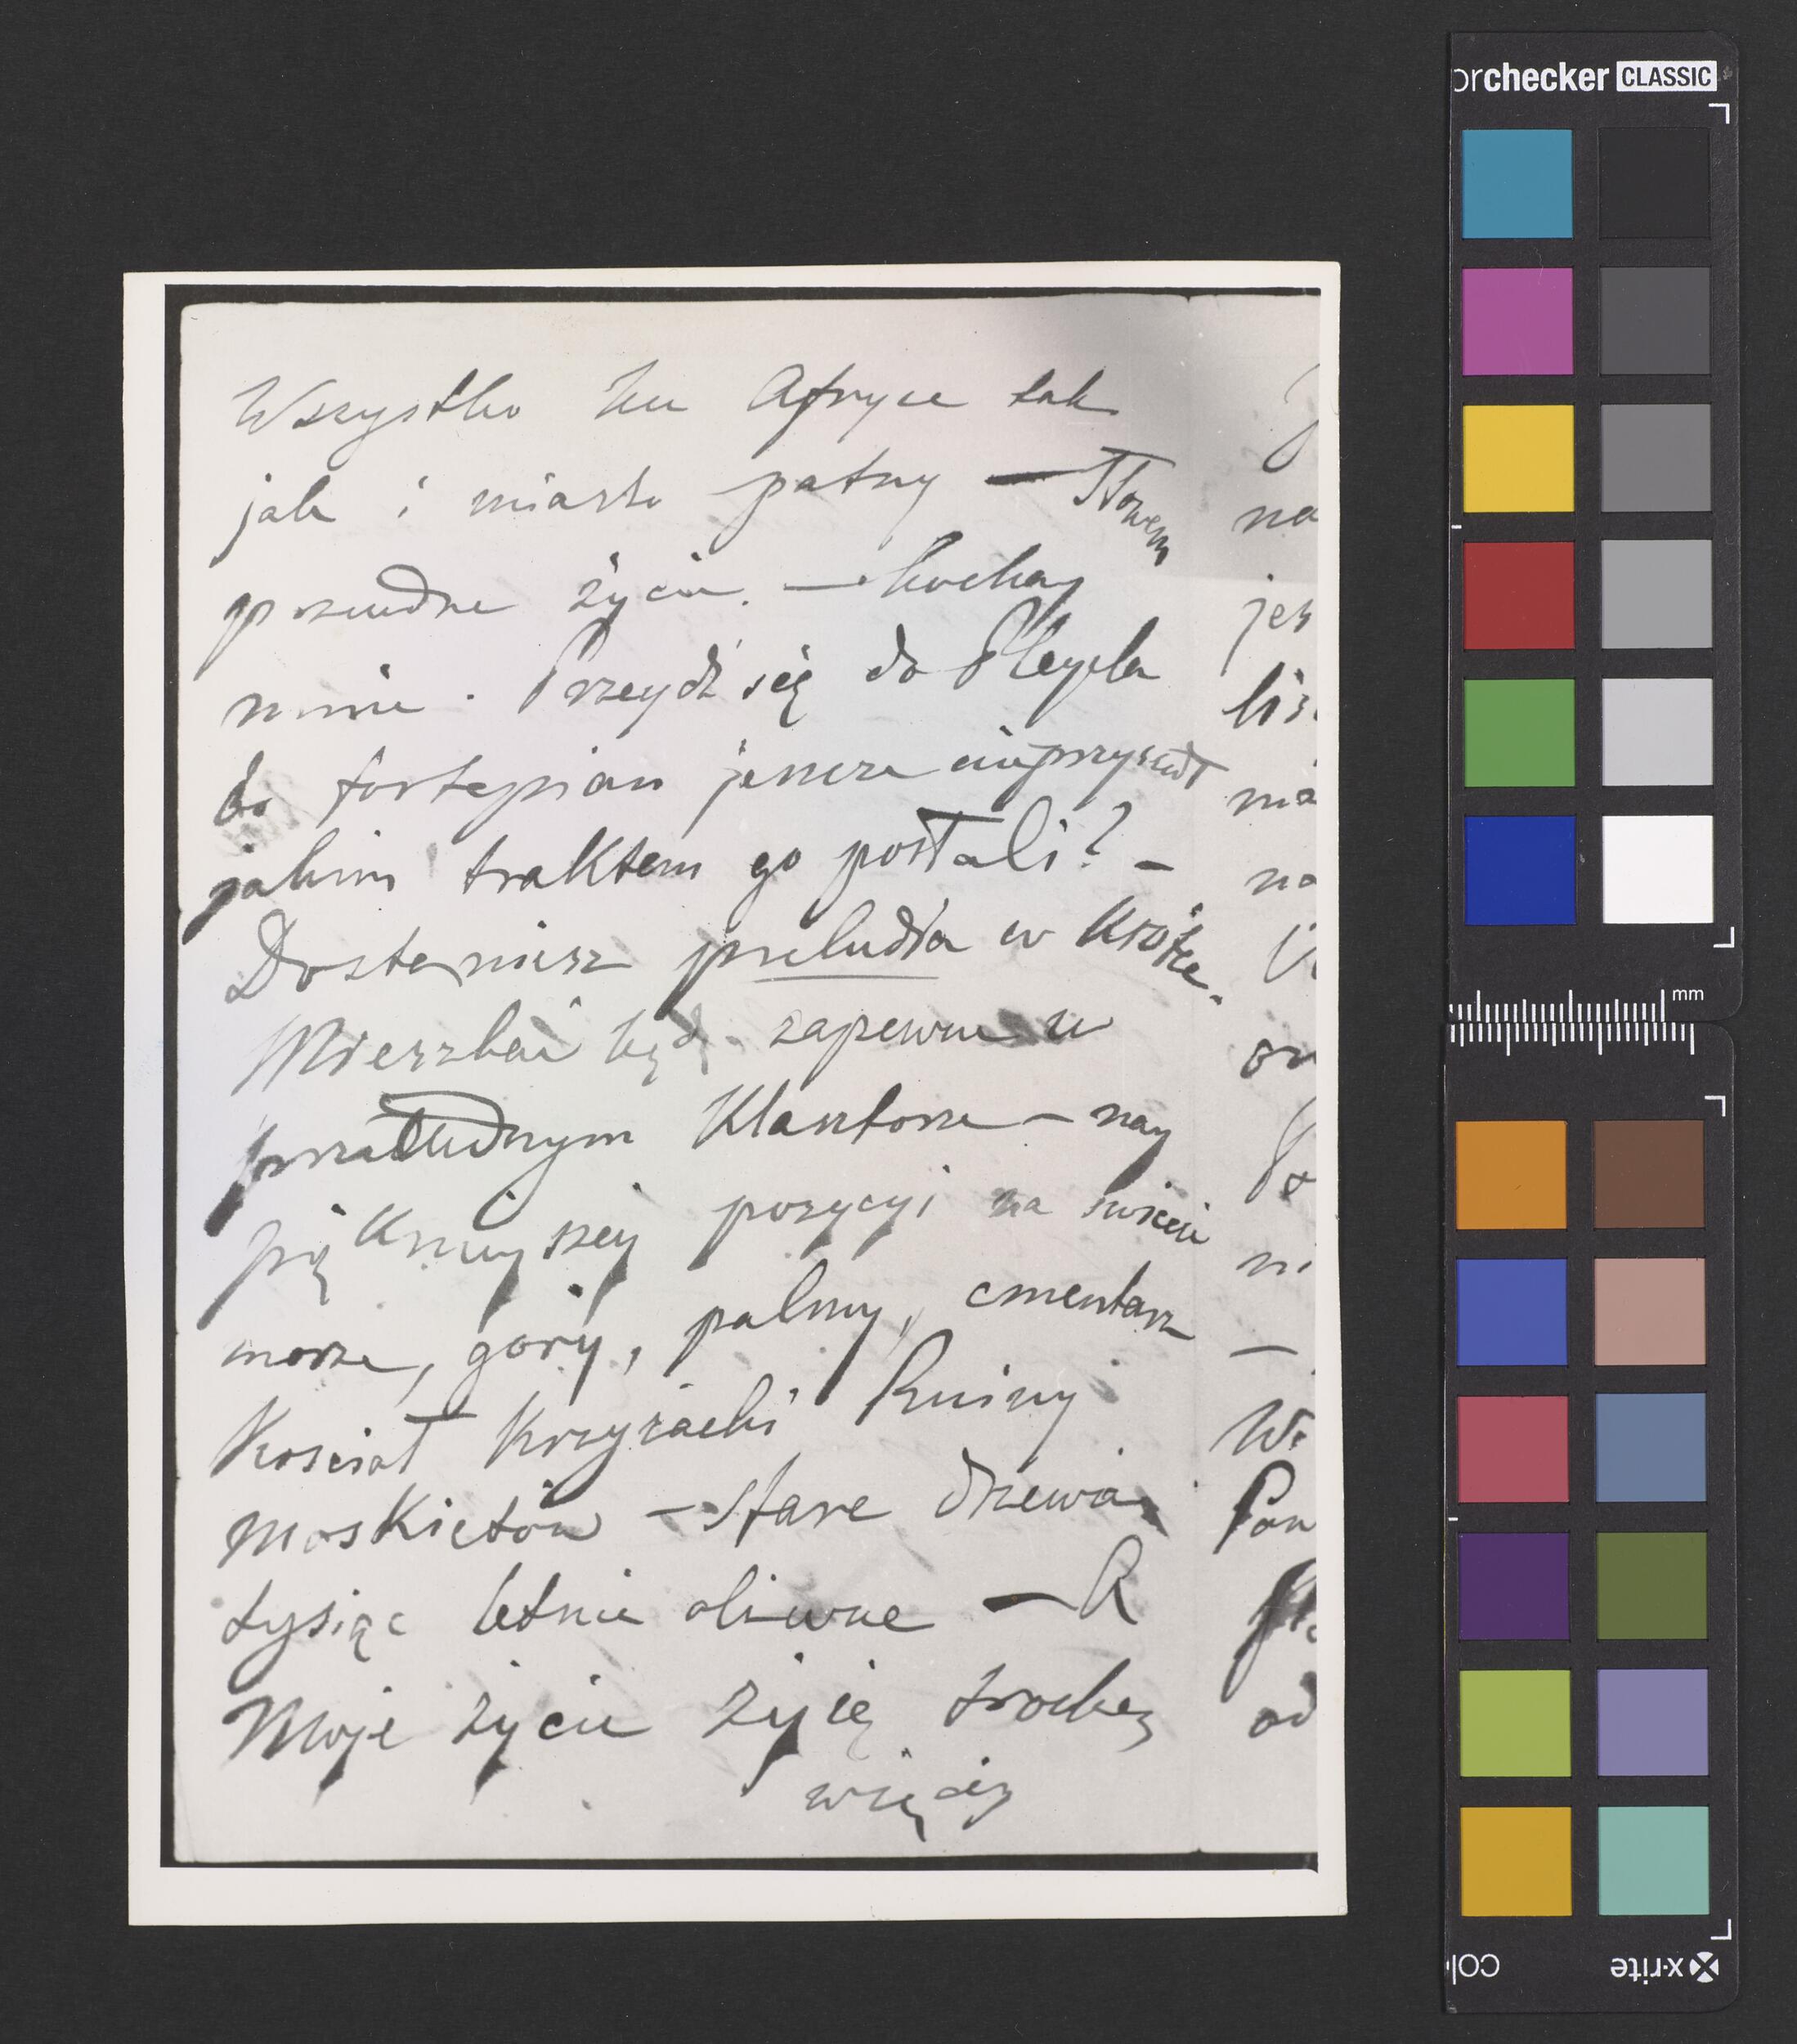 Wszystko ku Afryce tak
jak i miasto patrzy — Słowem
przecudne życie. — Kochay
mnie. Przeydź się do Pleyela
bo fortepian jeszcze nieprzyszedł
jakim traktem go posłali? —
Dostaniesz preludia w krótce.
Mieszkać będę zapewne w
przecudnym Klasztorze — nay
piękniyszey pozycyi na świecie
morze, góry, palmy, cmentarz
Kościoł Krzyżacki Ruiny
moskietów — stare drzewa
tysiąc letnie oliwne — A
Moje życie żyię trochę
więcéy
na
jes
orchecker CLASSIC
mm
x·rite
col